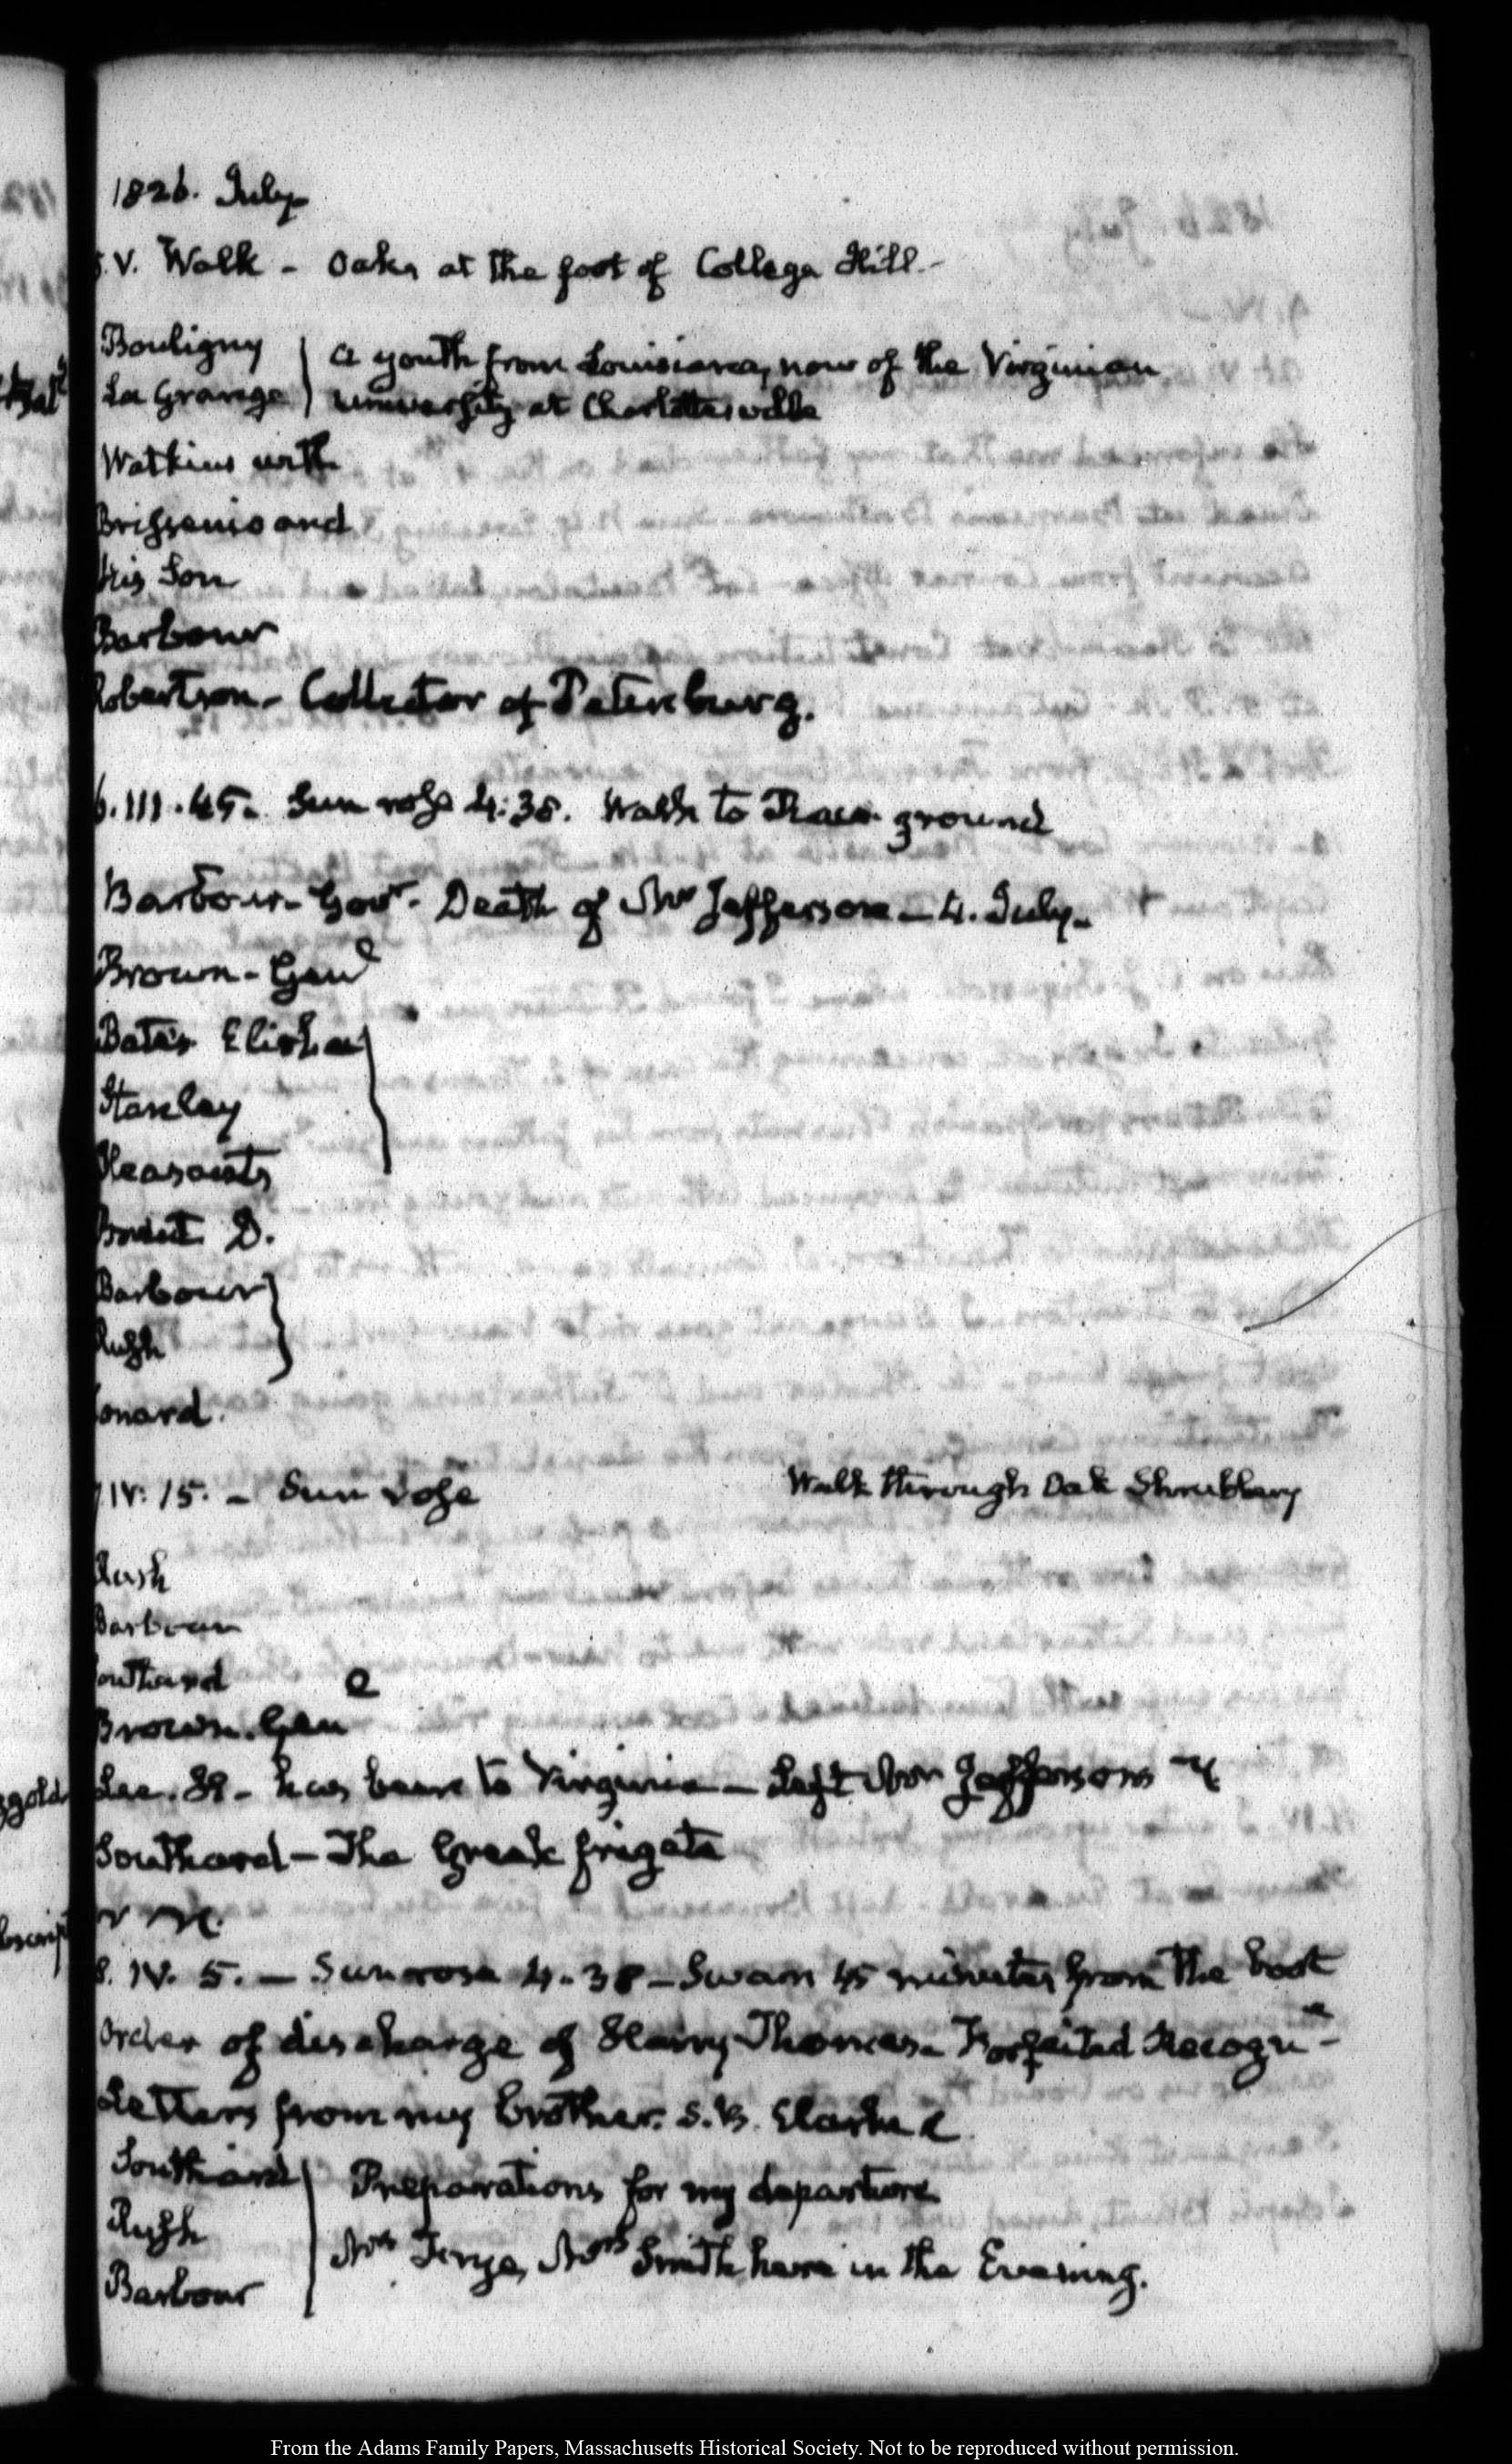 1826. July
5. V. Walk - Oaks at the foot of College Hill.-
Bouligny
La Grange
a youth from Louisiana, now of the Virginian
University at Charlottesville
Watkins with
and
his Son
Barbour
Robertson - Collector of Petersburg.
6. III. 45. Sun rose 4:38. Walk to Race ground
Barbour - Govr. Death of Mr Jefferson - 4. July.
Brown - Genl
Bates Elisha
Stanley
Pleasants
Brent D.
Barbour
Rush
7 IV: 15. - Sun rose
Walk through Oak Shrubbery
Rush
Barbour
Southard
Brown. Genl
Lee. has been to Virginia - Left Mr Jefferson's
Southard - The Greek frigate
8. IV. 5. - Sun rose 4-38 - Swam 45 minutes from the boat
Order of discharge of Harry Thomas - Forfeited Recogn
Letters from my brother. S. B. Clarke
Southard
Rush
Barbour
Preparations for my departure
Mrs Smith here in the Evening.
From the Adams Family Papers, Massachusetts Historical Society. Not to be reproduced without permission.